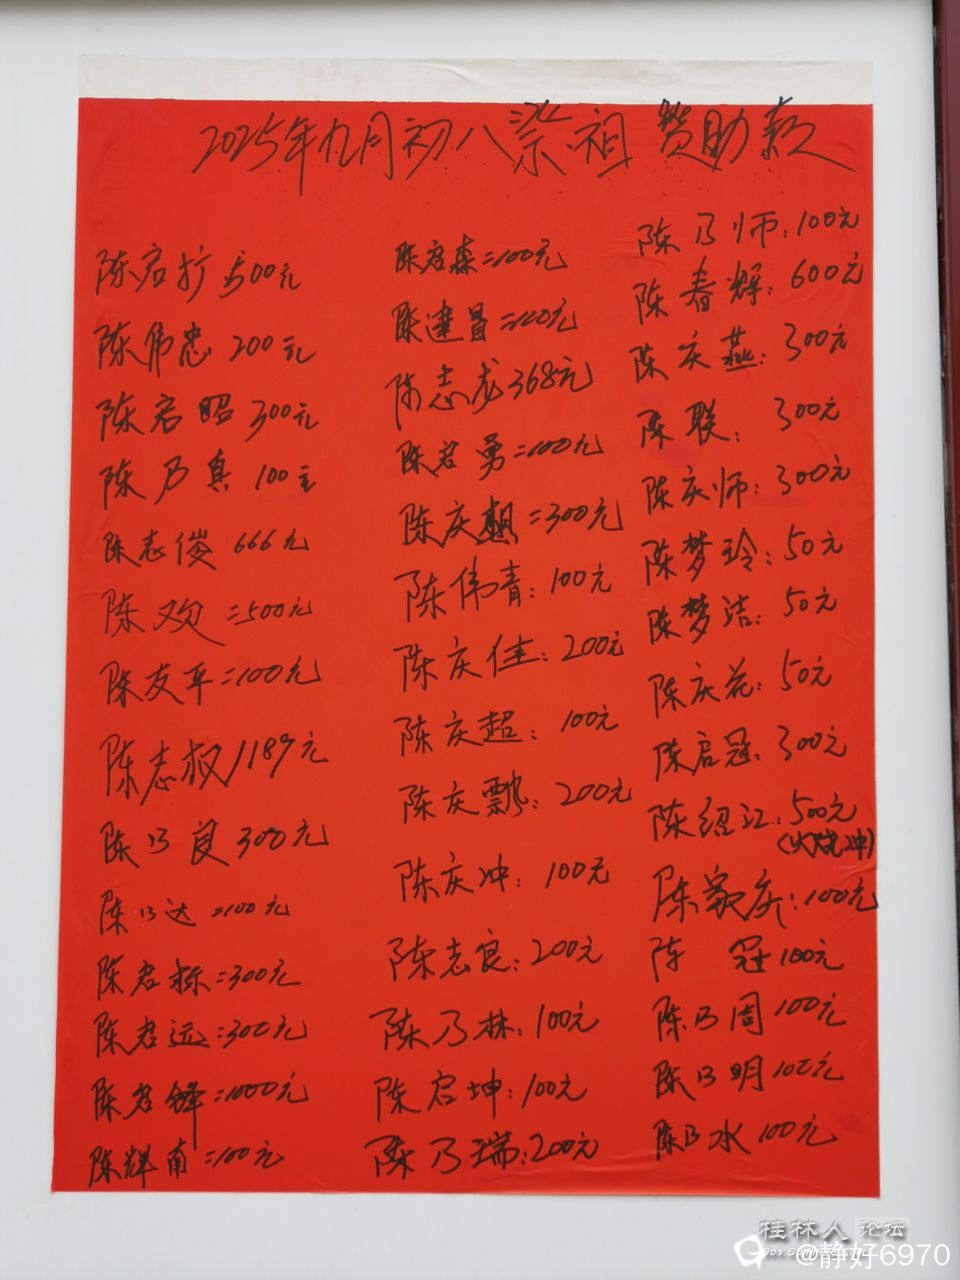 2025年九月初八祭祖赞助款
陈启扩 500元
陈伟忠 200元
陈启昭 300元
陈乃真 100元
陈志俊 666元
陈欢=500元
陈友平=100元
陈志权1189元
陈乃良300元
陈乃达=100元
陈启标=300元
陈启远=300元
陈启锋=1000元
陈辉南=100元
陈启森=100元
陈建昌=100元
陈志龙368元
陈启勇=100元
陈庆飙=300元
陈伟青:100元
陈庆佳:200元
陈庆超:100元
陈庆飘:200元
陈庆冲:100元
陈志良:200元
陈乃林:100元
陈启坤:100元
陈乃瑞:200元
陈乃师:100元
陈春辉:600元
陈庆燕:300元
陈联:300元
陈庆师:300元
陈梦玲:50元
陈梦洁:50元
陈庆花:50元
陈启冠:300元
陈绍江:500元
陈家庆:100元
陈冠100元
陈乃周100元
陈乃明100元
陈乃水100元
桂林人论坛
@静好6970